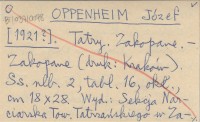 Q OPPENHEIM Józef
[1921?]. Tatry. Zakopane. -
Zakopane (druk: Kraków).
Ss. nlb. 2, tabl. 16, okł.,
cm 18 x 28. Wyd: Sekcja Nar-
ciarska Tow. Tatrzańskiego w Za-